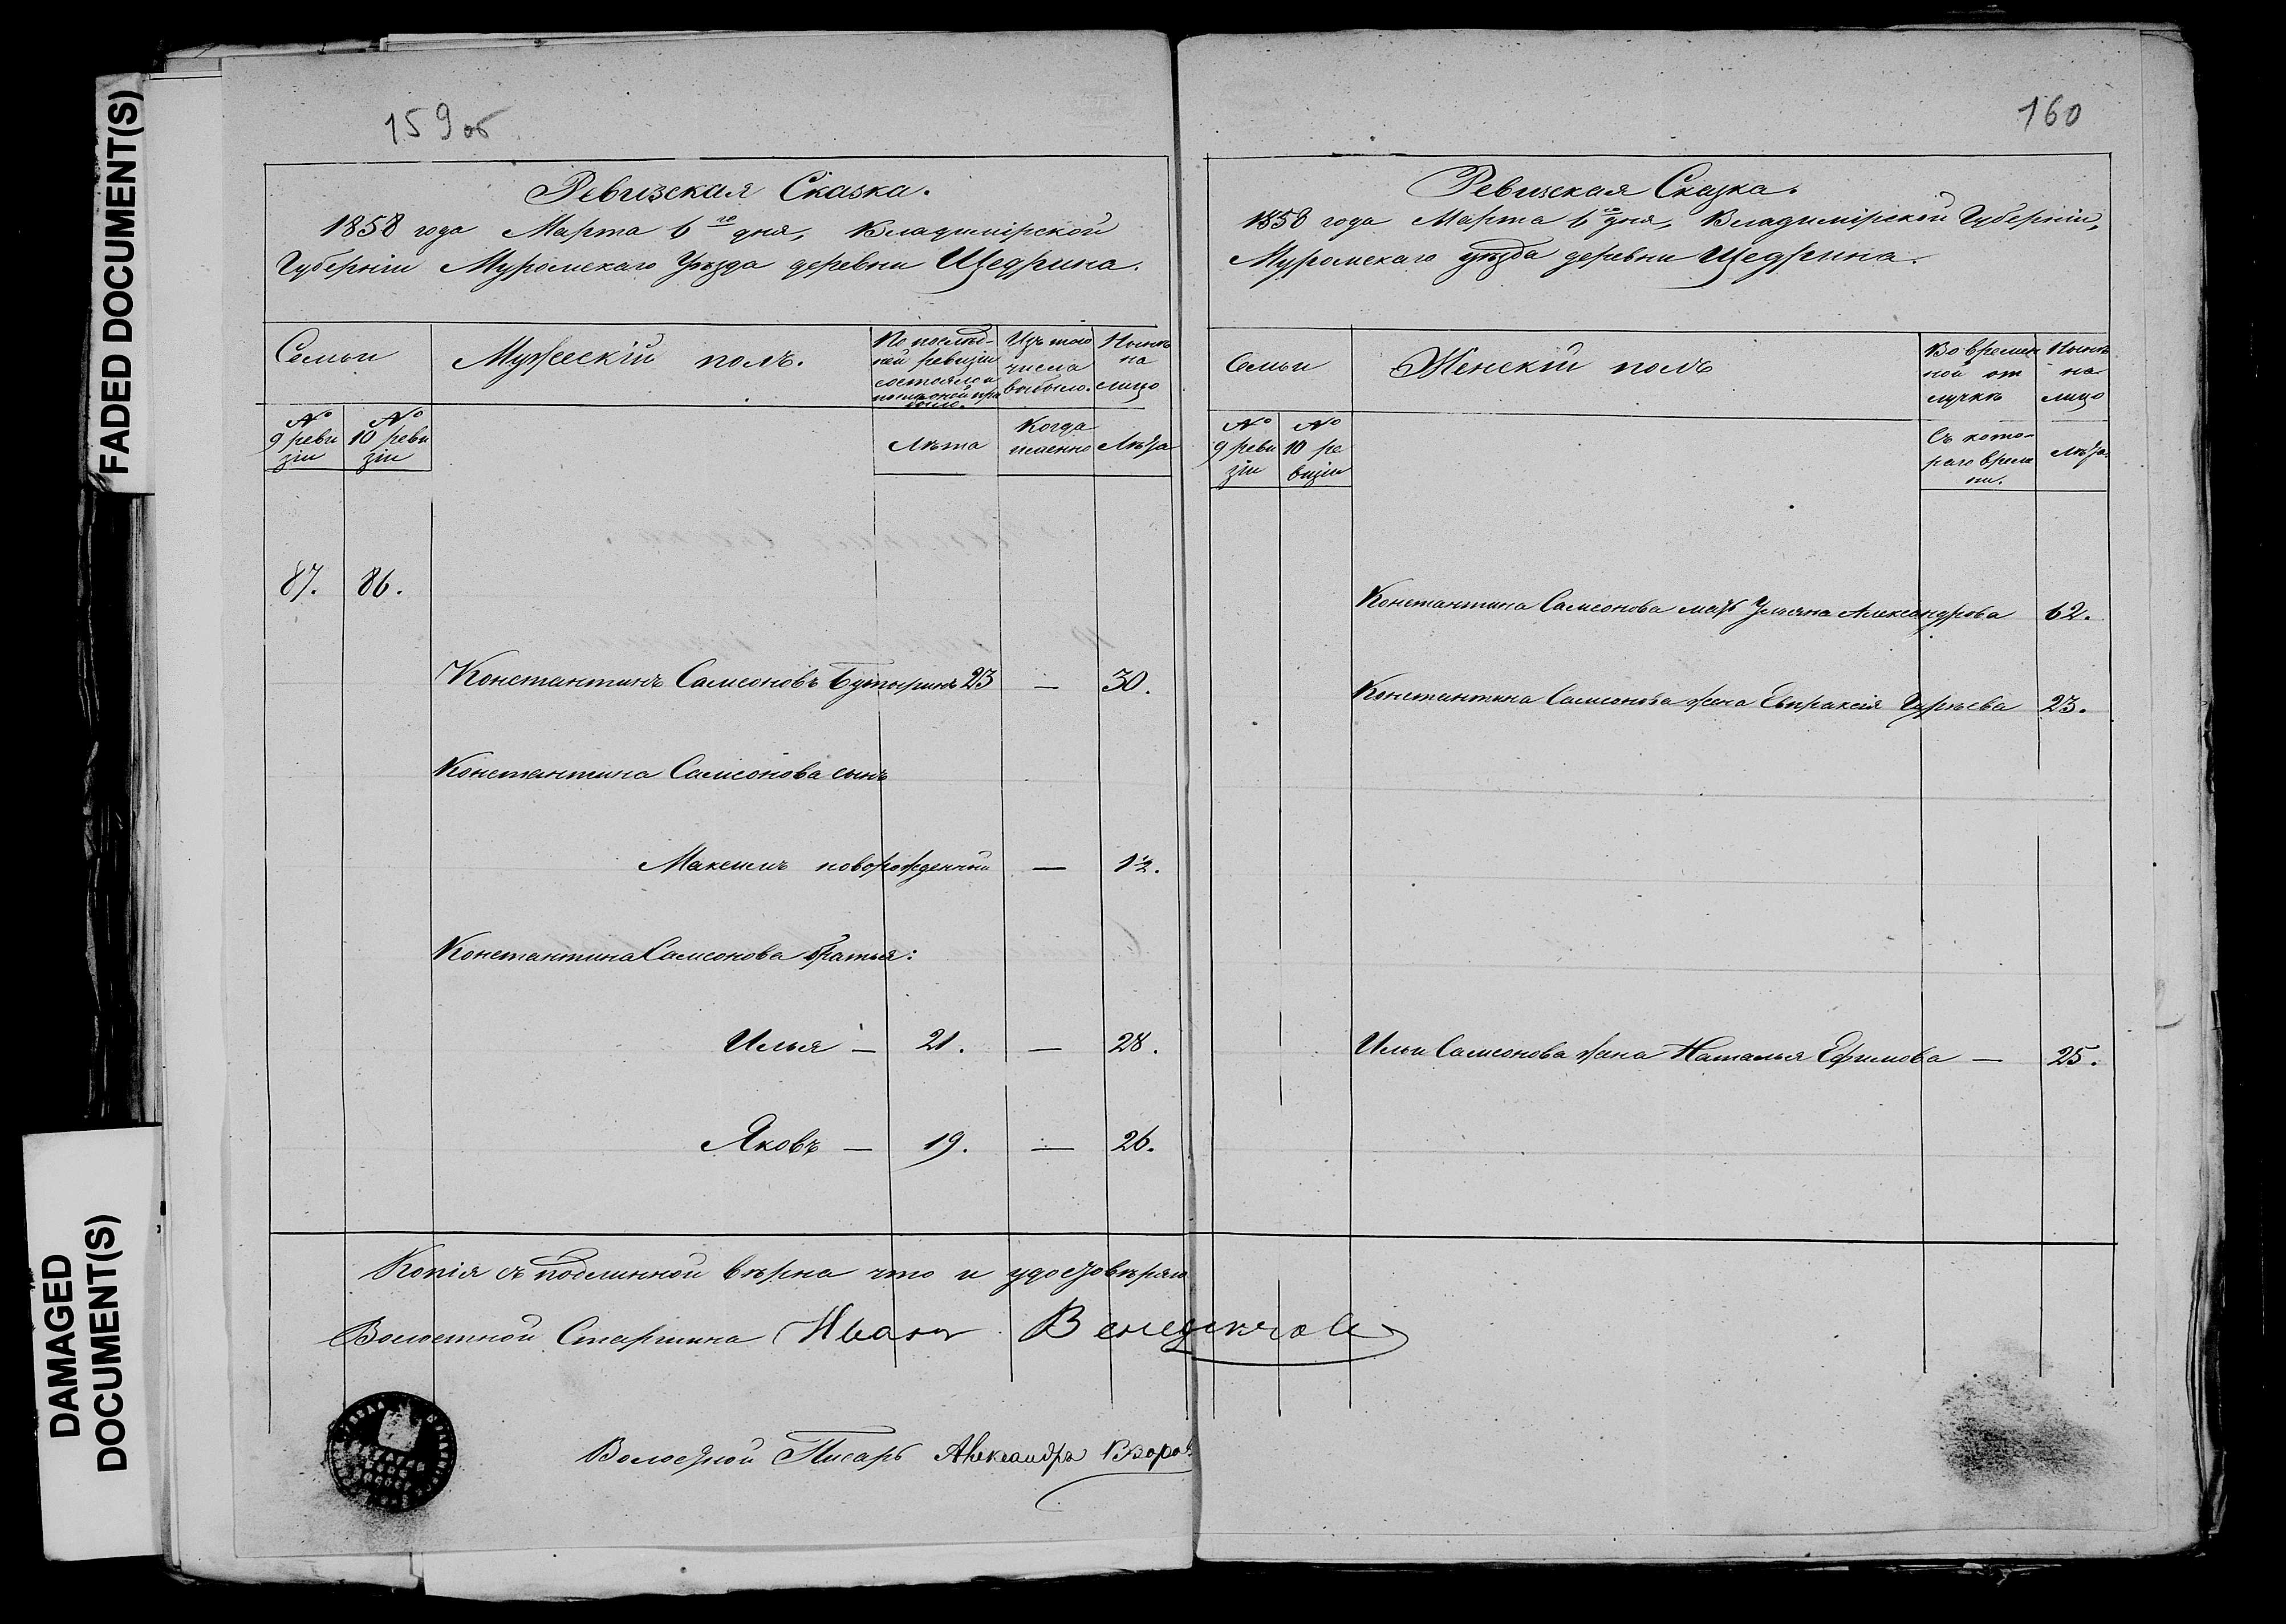 FADED DOCUMENT(S)
DAMAGED
DOCUMENT(S)
159об
Ревизская Сказка.
1858 года Марта 6го дня, Владимірской
Губерніи Муромскаго Уѣзда деревни Щедрина.
Семьи
Мужескій полъ.
По послѣд-
ней ревизіи
состояло и
послѣ оной при
было.
Изъ того
числа
выбыло.
Нынѣ
на
лицо
№
9 реви
зіи
№
10 реви
зіи
Лѣта
Когда
именно
Лѣта
87. 86.
Константинъ Самсоновъ Бутыринъ 23 — 30.
Константина Самсонова сынъ
Максимъ новорожденный — 1½.
Константина Самсонова братья:
Илья — 21. — 28.
Яковъ — 19. — 26.
Копія съ подлинной вѣрна что и удостовѣряю
Волостной Старшина Иванъ
Волостной Писарь Александръ
160
Ревизская Сказка.
1858 года Марта 6го дня, Владимірской Губерніи,
Муромскаго уѣзда деревни Щедрина.
Семьи
Женскій полъ
Во времен
ной от
лучкѣ
Нынѣ
на
лицо
№
9 реви
зіи
№
10 ре
визіи
Съ кото-
раго време
ни.
Лѣта.
Константина Самсонова мать Ульяна Александрова 62.
Константина Самсонова жена Евпраксія Гурьева 23.
Ильи Самсонова жена Наталья Ефимова — 25.